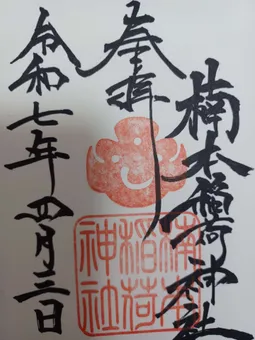 奉拝
楠本稲荷神社
楠本稲荷神社
令和七年四月三日